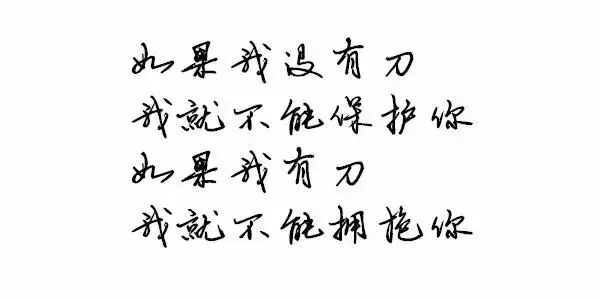 如果我没有刀
我就不能保护你
如果我有刀
我就不能拥抱你